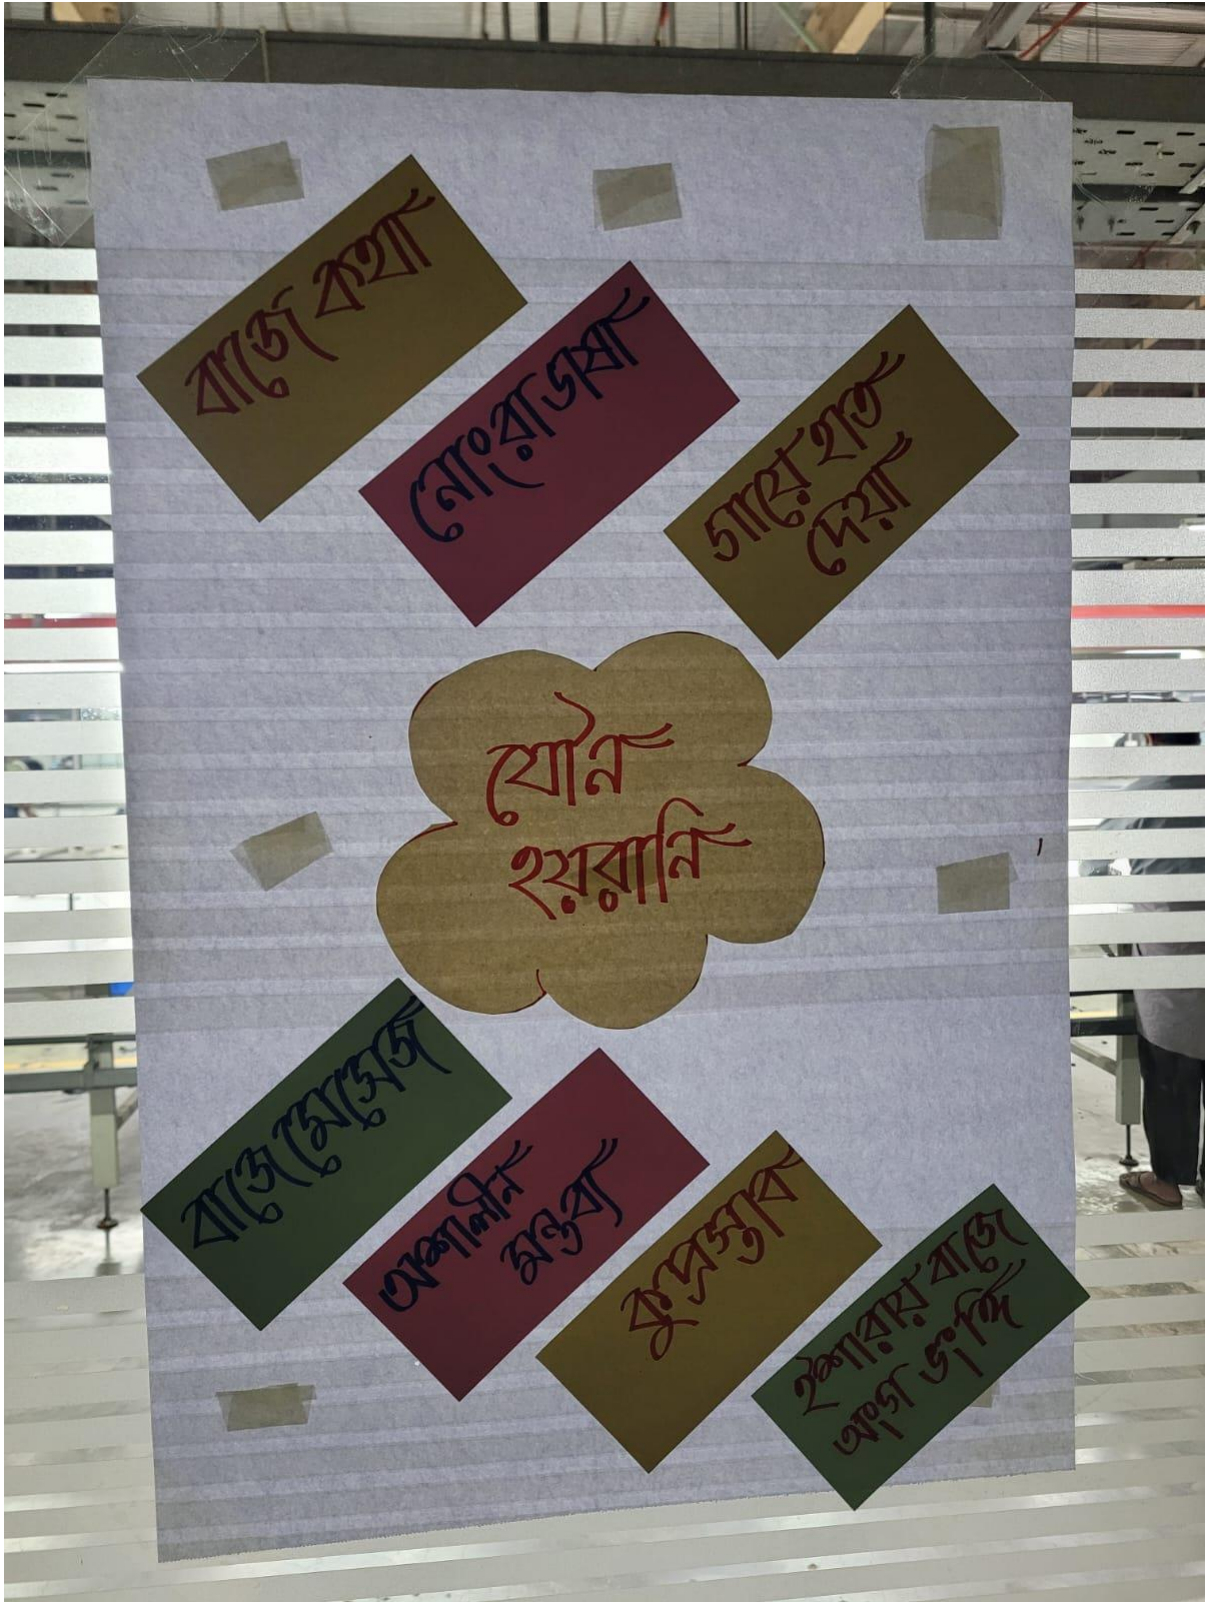 বাজে কথা
নোংরা ভাষা
গায়ে হাত
দেয়া
যৌন
হয়রানি
বাজে মেসেজ
অশালীন
মন্তব্য
কুপ্রস্তাব
ইশারায় বাজে
অংগ ভংগি